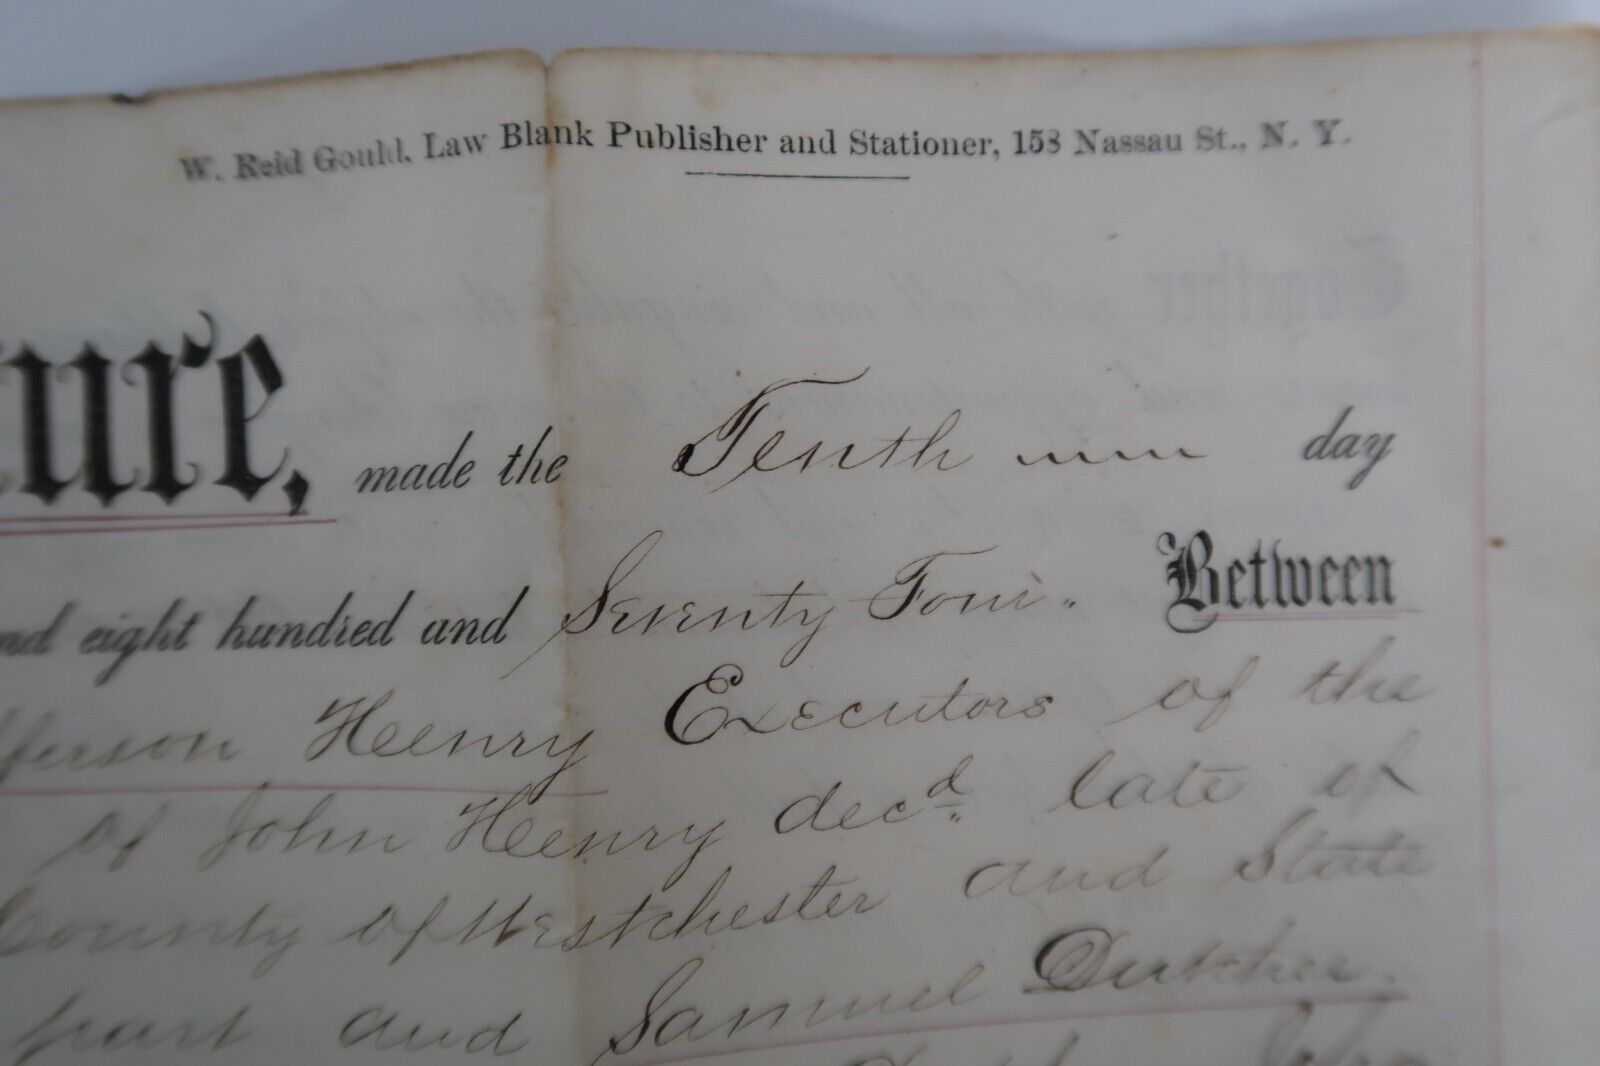 W. Reid Gould, Law Blank Publisher and Stationer, 158 Nassau St., N. Y.
ture, made the Tenth day
nd eight hundred and Seventy Four. Between
fferson Henry Executors of the
of John Henry decd. late of
County of Westchester and State
part and Samuel Dutcher.
John